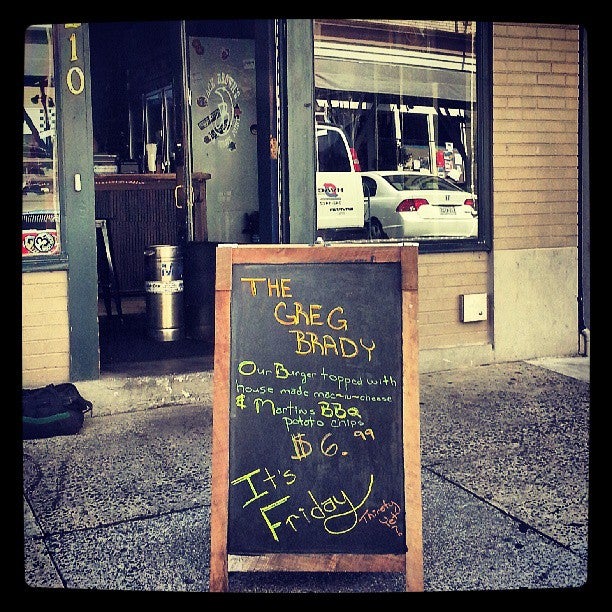 10
THE
GREG
BRADY
Our Burger topped with
house made mac-n-cheese
& Martins BBQ
potato chips
$6.99
It's
Friday
Thirsty
yet?